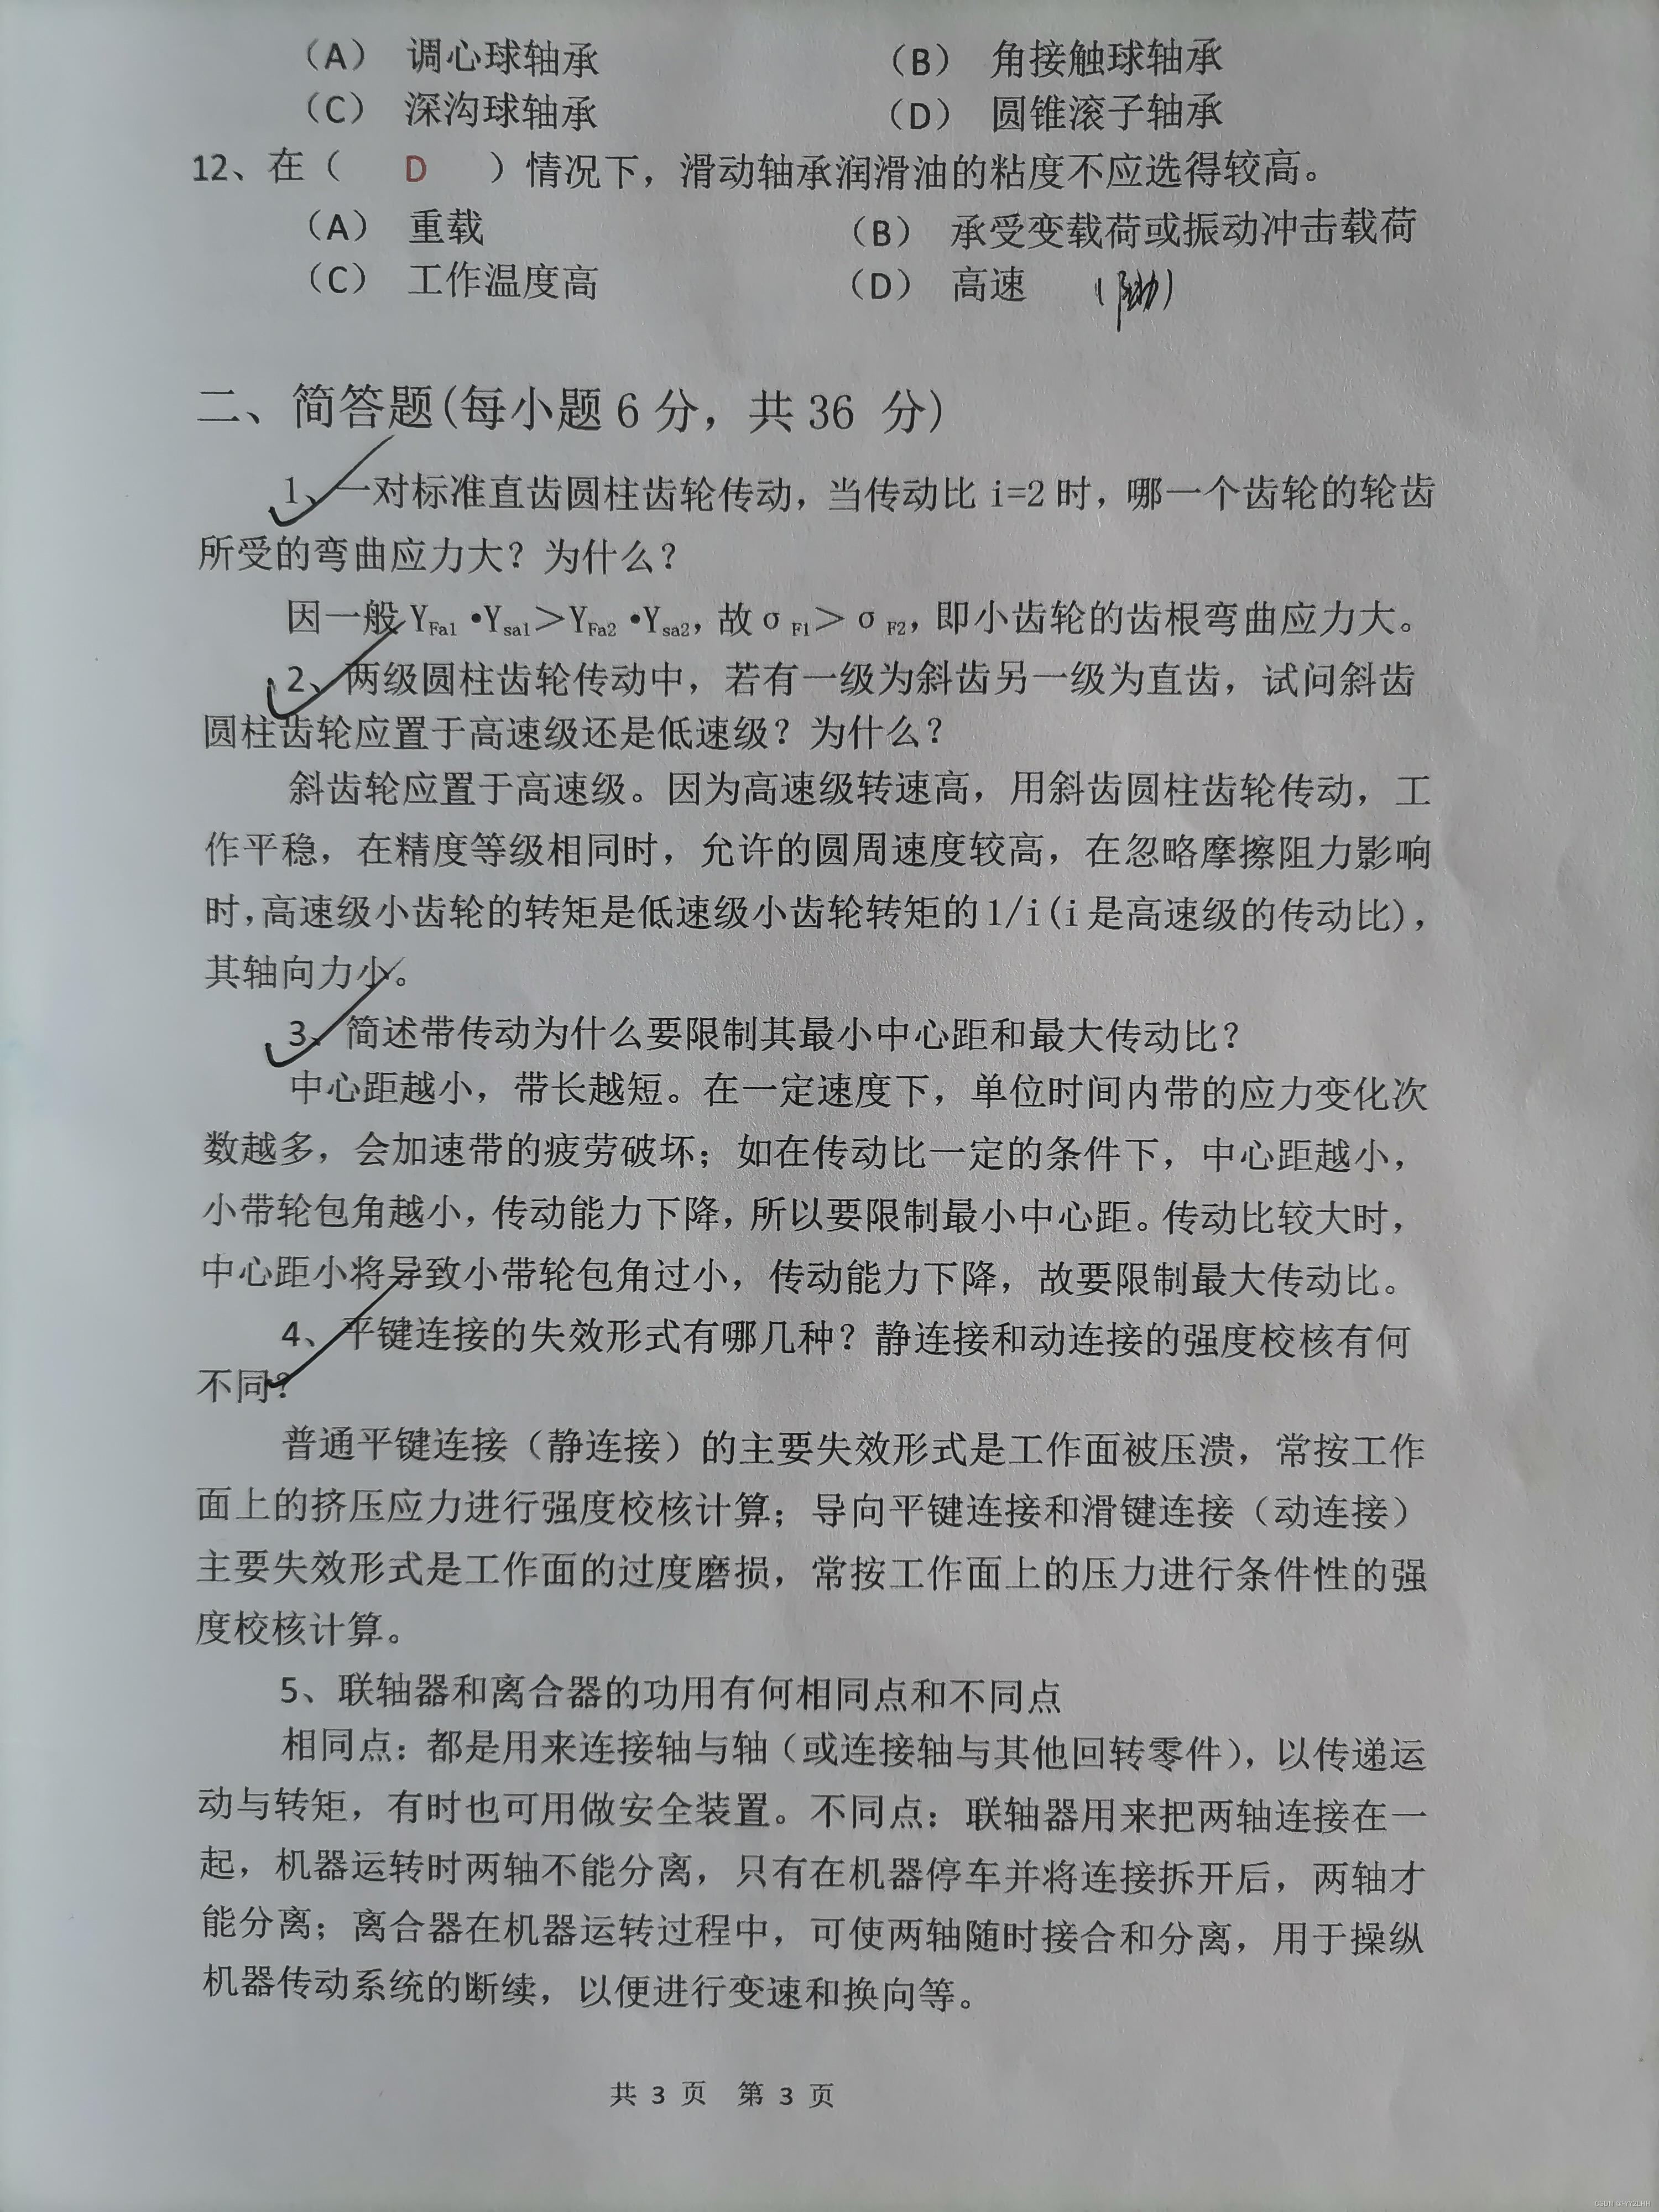 （A） 调心球轴承 （B） 角接触球轴承
（C） 深沟球轴承 （D） 圆锥滚子轴承
12、在（ D ）情况下，滑动轴承润滑油的粘度不应选得较高。
（A） 重载 （B） 承受变载荷或振动冲击载荷
（C） 工作温度高 （D） 高速
二、简答题(每小题6分，共36 分)
1、一对标准直齿圆柱齿轮传动，当传动比 i=2时，哪一个齿轮的轮齿
所受的弯曲应力大？为什么？
因一般 YFa1 •Ysa1＞YFa2 •Ysa2，故σF1＞σF2，即小齿轮的齿根弯曲应力大。
2、两级圆柱齿轮传动中，若有一级为斜齿另一级为直齿，试问斜齿
圆柱齿轮应置于高速级还是低速级？为什么？
斜齿轮应置于高速级。因为高速级转速高，用斜齿圆柱齿轮传动，工
作平稳，在精度等级相同时，允许的圆周速度较高，在忽略摩擦阻力影响
时，高速级小齿轮的转矩是低速级小齿轮转矩的1/i(i是高速级的传动比)，
其轴向力小。
3、简述带传动为什么要限制其最小中心距和最大传动比？
中心距越小，带长越短。在一定速度下，单位时间内带的应力变化次
数越多，会加速带的疲劳破坏；如在传动比一定的条件下，中心距越小，
小带轮包角越小，传动能力下降，所以要限制最小中心距。传动比较大时，
中心距小将导致小带轮包角过小，传动能力下降，故要限制最大传动比。
4、平键连接的失效形式有哪几种？静连接和动连接的强度校核有何
不同？
普通平键连接（静连接）的主要失效形式是工作面被压溃，常按工作
面上的挤压应力进行强度校核计算；导向平键连接和滑键连接（动连接）
主要失效形式是工作面的过度磨损，常按工作面上的压力进行条件性的强
度校核计算。
5、联轴器和离合器的功用有何相同点和不同点
相同点：都是用来连接轴与轴（或连接轴与其他回转零件），以传递运
动与转矩，有时也可用做安全装置。不同点：联轴器用来把两轴连接在一
起，机器运转时两轴不能分离，只有在机器停车并将连接拆开后，两轴才
能分离；离合器在机器运转过程中，可使两轴随时接合和分离，用于操纵
机器传动系统的断续，以便进行变速和换向等。
共 3 页 第 3 页